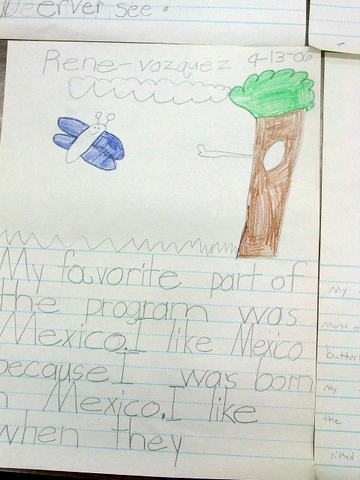 Deerver see.
Rene-vazquez 4-13-06
My favorite part of
the program was
Mexico.I like Mexico
because I was born
n Mexico.I like
when they
My
most
butter
My
the
liked